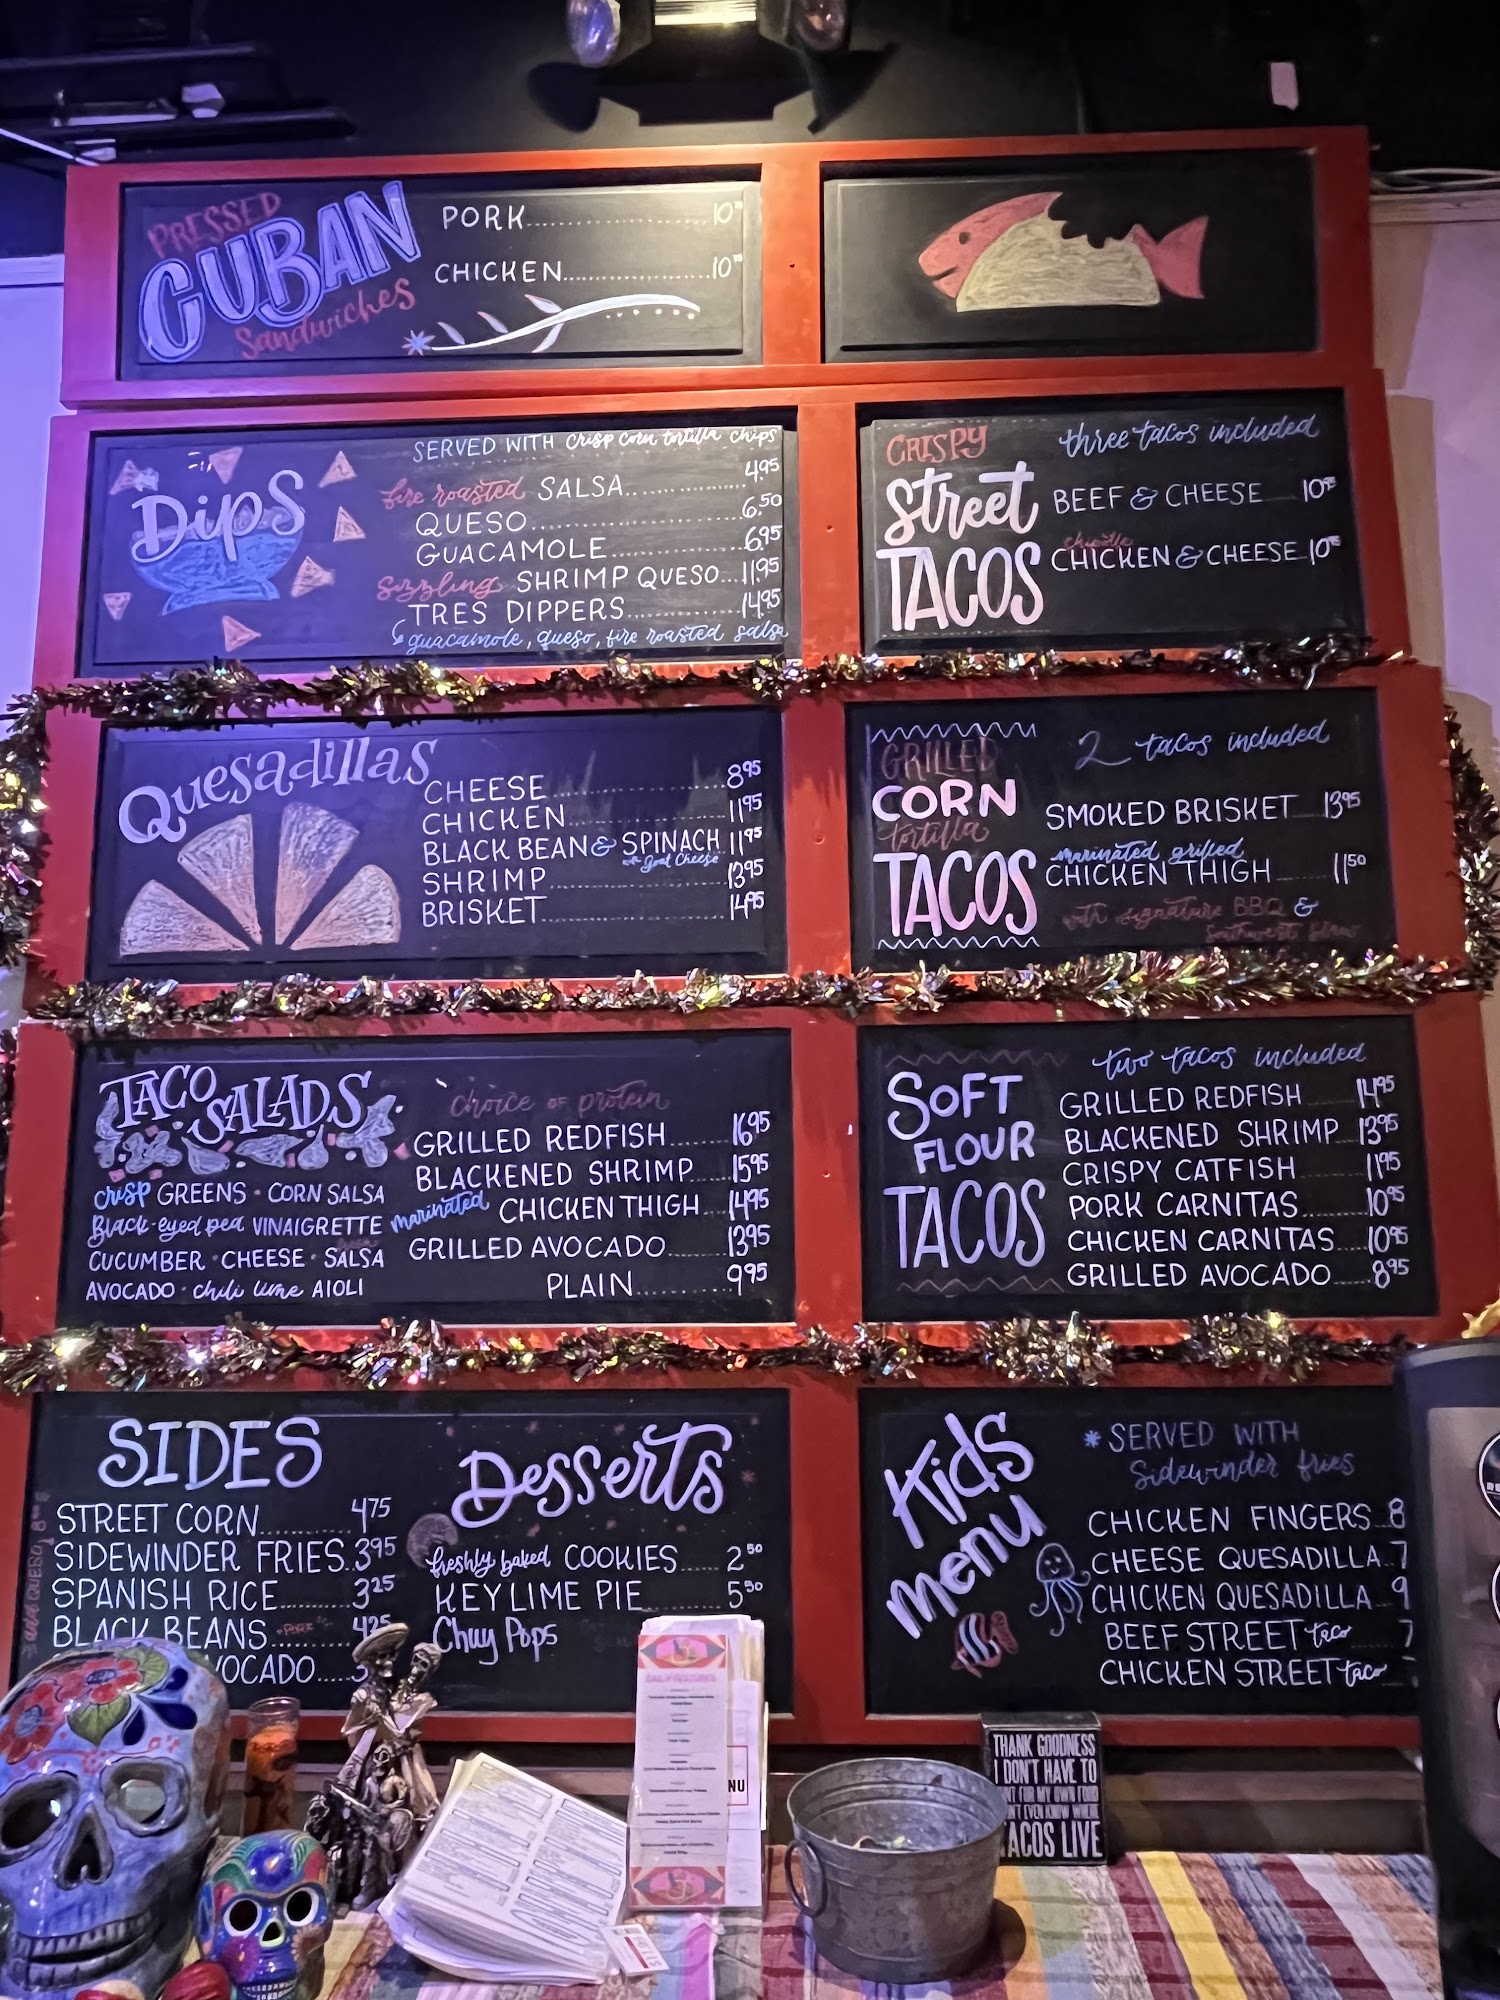 PRESSED
CUBAN
Sandwiches
PORK 10
CHICKEN 10
Dips
SERVED WITH crisp corn tortilla chips
fire roasted SALSA 4.95
QUESO 6.50
GUACAMOLE 6.95
Sizzling SHRIMP QUESO 11.95
TRES DIPPERS 14.95
guacamole, queso, fire roasted salsa
CRISPY
Street
TACOS
three tacos included
BEEF & CHEESE 10 95
chipotle
CHICKEN & CHEESE 10 95
Quesadillas
CHEESE 8 95
CHICKEN 11 95
BLACK BEAN & SPINACH 11 95
Goat Cheese
SHRIMP 13 95
BRISKET 14 95
GRILLED
CORN
tortilla
TACOS
2 tacos included
SMOKED BRISKET 13 95
marinated grilled
CHICKEN THIGH 11 50
with signature BBQ &
Southwest Slaw
TACO
SALADS
crisp GREENS · CORN SALSA
Black-eyed pea VINAIGRETTE
CUCUMBER · CHEESE · SALSA
AVOCADO · chili lime AIOLI
choice of protein
GRILLED REDFISH 16 95
BLACKENED SHRIMP 15 95
marinated CHICKEN THIGH 14 95
GRILLED AVOCADO 13 95
PLAIN 9 95
SOFT
FLOUR
TACOS
two tacos included
GRILLED REDFISH 14 95
BLACKENED SHRIMP 13 95
CRISPY CATFISH 11 95
PORK CARNITAS 10 95
CHICKEN CARNITAS 10 95
GRILLED AVOCADO 8 95
SIDES
STREET CORN 4 75
SIDEWINDER FRIES 3 95
SPANISH RICE 3 25
BLACK BEANS 4 25
AVOCADO 3
Desserts
freshly baked COOKIES 2 50
KEY LIME PIE 5 50
Chuy Pops
Kids
menu
* SERVED WITH
Sidewinder fries
CHICKEN FINGERS 8
CHEESE QUESADILLA 7
CHICKEN QUESADILLA 9
BEEF STREET taco 7
CHICKEN STREET taco
NU
THANK GOODNESS
I DON'T HAVE TO
FOR MY OWN FOOD
EVEN KNOW WHERE
TACOS LIVE